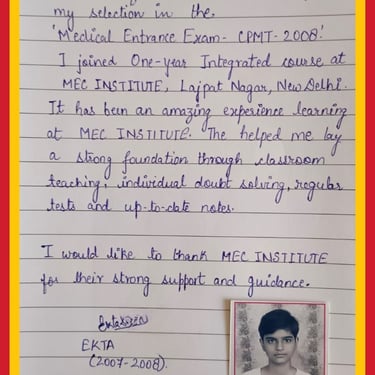 my selection in the.
'Medical Entrance Exam- CPMT-2008.'
I joined One-year Integrated course at
MEC INSTITUTE, Lajpat Nagar, New Delhi.
It has been an amazing experience learning
at MEC INSTITUTE. The helped me lay
a strong foundation through classroom
teaching, individual doubt solving, regular
tests and up-to-date notes.
I would like to thank MEC INSTITUTE
for their strong support and guidance.
EKTA
(2007-2008).